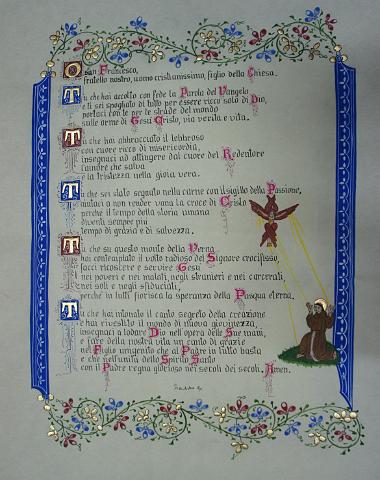 O san Francesco,
fratello nostro, uomo cristianissimo, figlio della Chiesa.
Tu che hai accolto con fede la Parola del Vangelo
e ti sei spogliato di tutto per essere ricco solo di Dio,
portaci con te per le strade del mondo
sulle orme di Gesù Cristo, via verità e vita.
Tu che hai abbracciato il lebbroso
con cuore ricco di misericordia,
insegnaci ad attingere dal cuore del Redentore
l'amore che salva
e la tristezza nella gioia vera.
Tu che sei stato segnato nella carne con il sigillo della Passione,
aiutaci a non render vana la croce di Cristo
perché il tempo della storia umana
diventi sempre più
tempo di grazia e di salvezza.
Tu che su questo monte della Verna
hai contemplato il volto radioso del Signore crocifisso,
facci riconoscere e servire Gesù
nei poveri e nei malati, negli stranieri e nei carcerati,
nei soli e negli sfiduciati,
perché in tutti fiorisca la speranza della Pasqua eterna.
Tu che hai intonato il canto segreto della creazione
e hai rivestito il mondo di nuova giovinezza,
insegnaci a lodare Dio nell'opera delle Sue mani,
e fare della nostra vita un canto di grazie
nel Figlio unigenito che al Padre in tutto basta
e che nell'unità dello Spirito Santo
con il Padre regna glorioso nei secoli dei secoli. Amen.